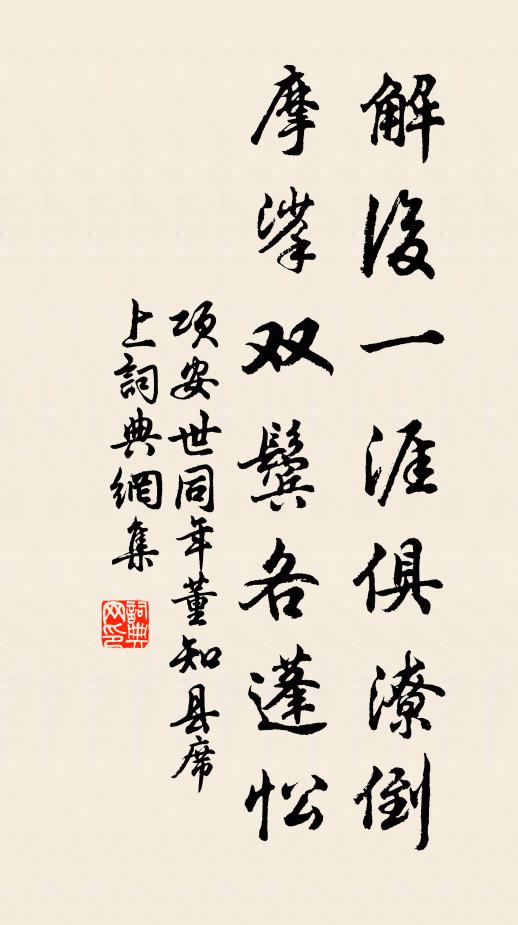 解後一涯俱潦倒
摩挲双鬓各蓬忪
项安世同年董知县席
上詞典網集
詞典网印